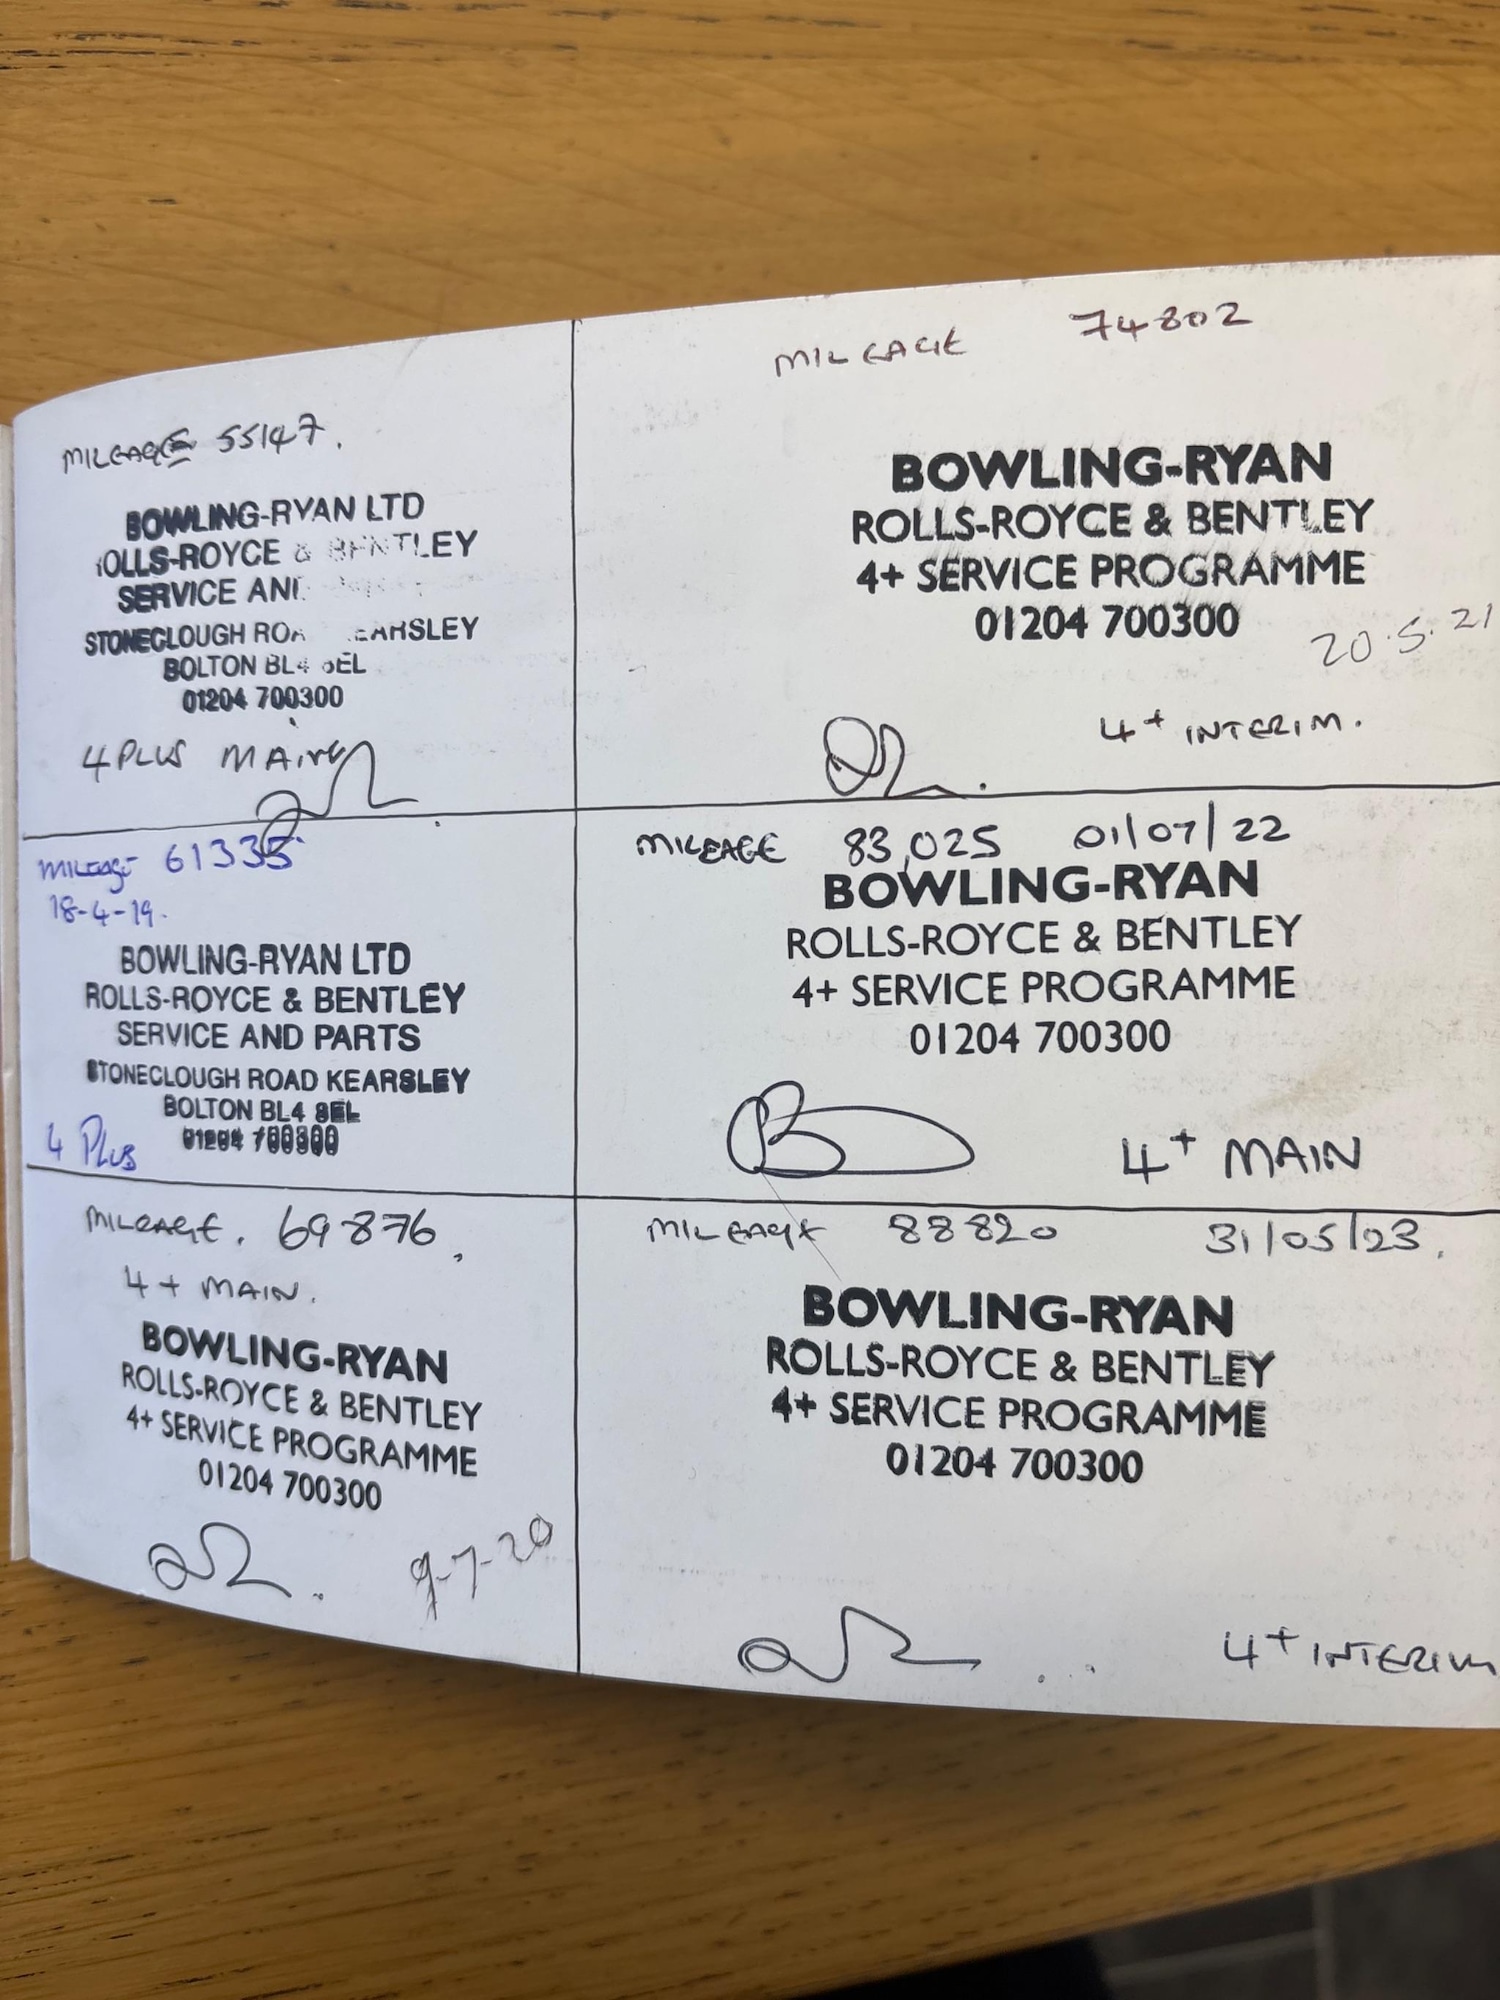 MILEAGE 55147.
BOWLING-RYAN LTD
ROLLS-ROYCE & BENTLEY
SERVICE AND
STONECLOUGH ROAD KEARSLEY
BOLTON BL4 8EL
01204 700300
4 PLUS MAIN
MILEAGE 61335
18-4-19.
BOWLING-RYAN LTD
ROLLS-ROYCE & BENTLEY
SERVICE AND PARTS
STONECLOUGH ROAD KEARSLEY
BOLTON BL4 8EL
01204 700300
4 PLUS
MILEAGE. 69876.
4+ MAIN.
BOWLING-RYAN
ROLLS-ROYCE & BENTLEY
4+ SERVICE PROGRAMME
01204 700300
9-7-20
MILEAGE 74802
BOWLING-RYAN
ROLLS-ROYCE & BENTLEY
4+ SERVICE PROGRAMME
01204 700300
20.5.21
4+ INTERIM.
MILEAGE 83,025 01/07/22
BOWLING-RYAN
ROLLS-ROYCE & BENTLEY
4+ SERVICE PROGRAMME
01204 700300
4+ MAIN
MILEAGE 88820 31/05/23.
BOWLING-RYAN
ROLLS-ROYCE & BENTLEY
4+ SERVICE PROGRAMME
01204 700300
4+ INTERIM